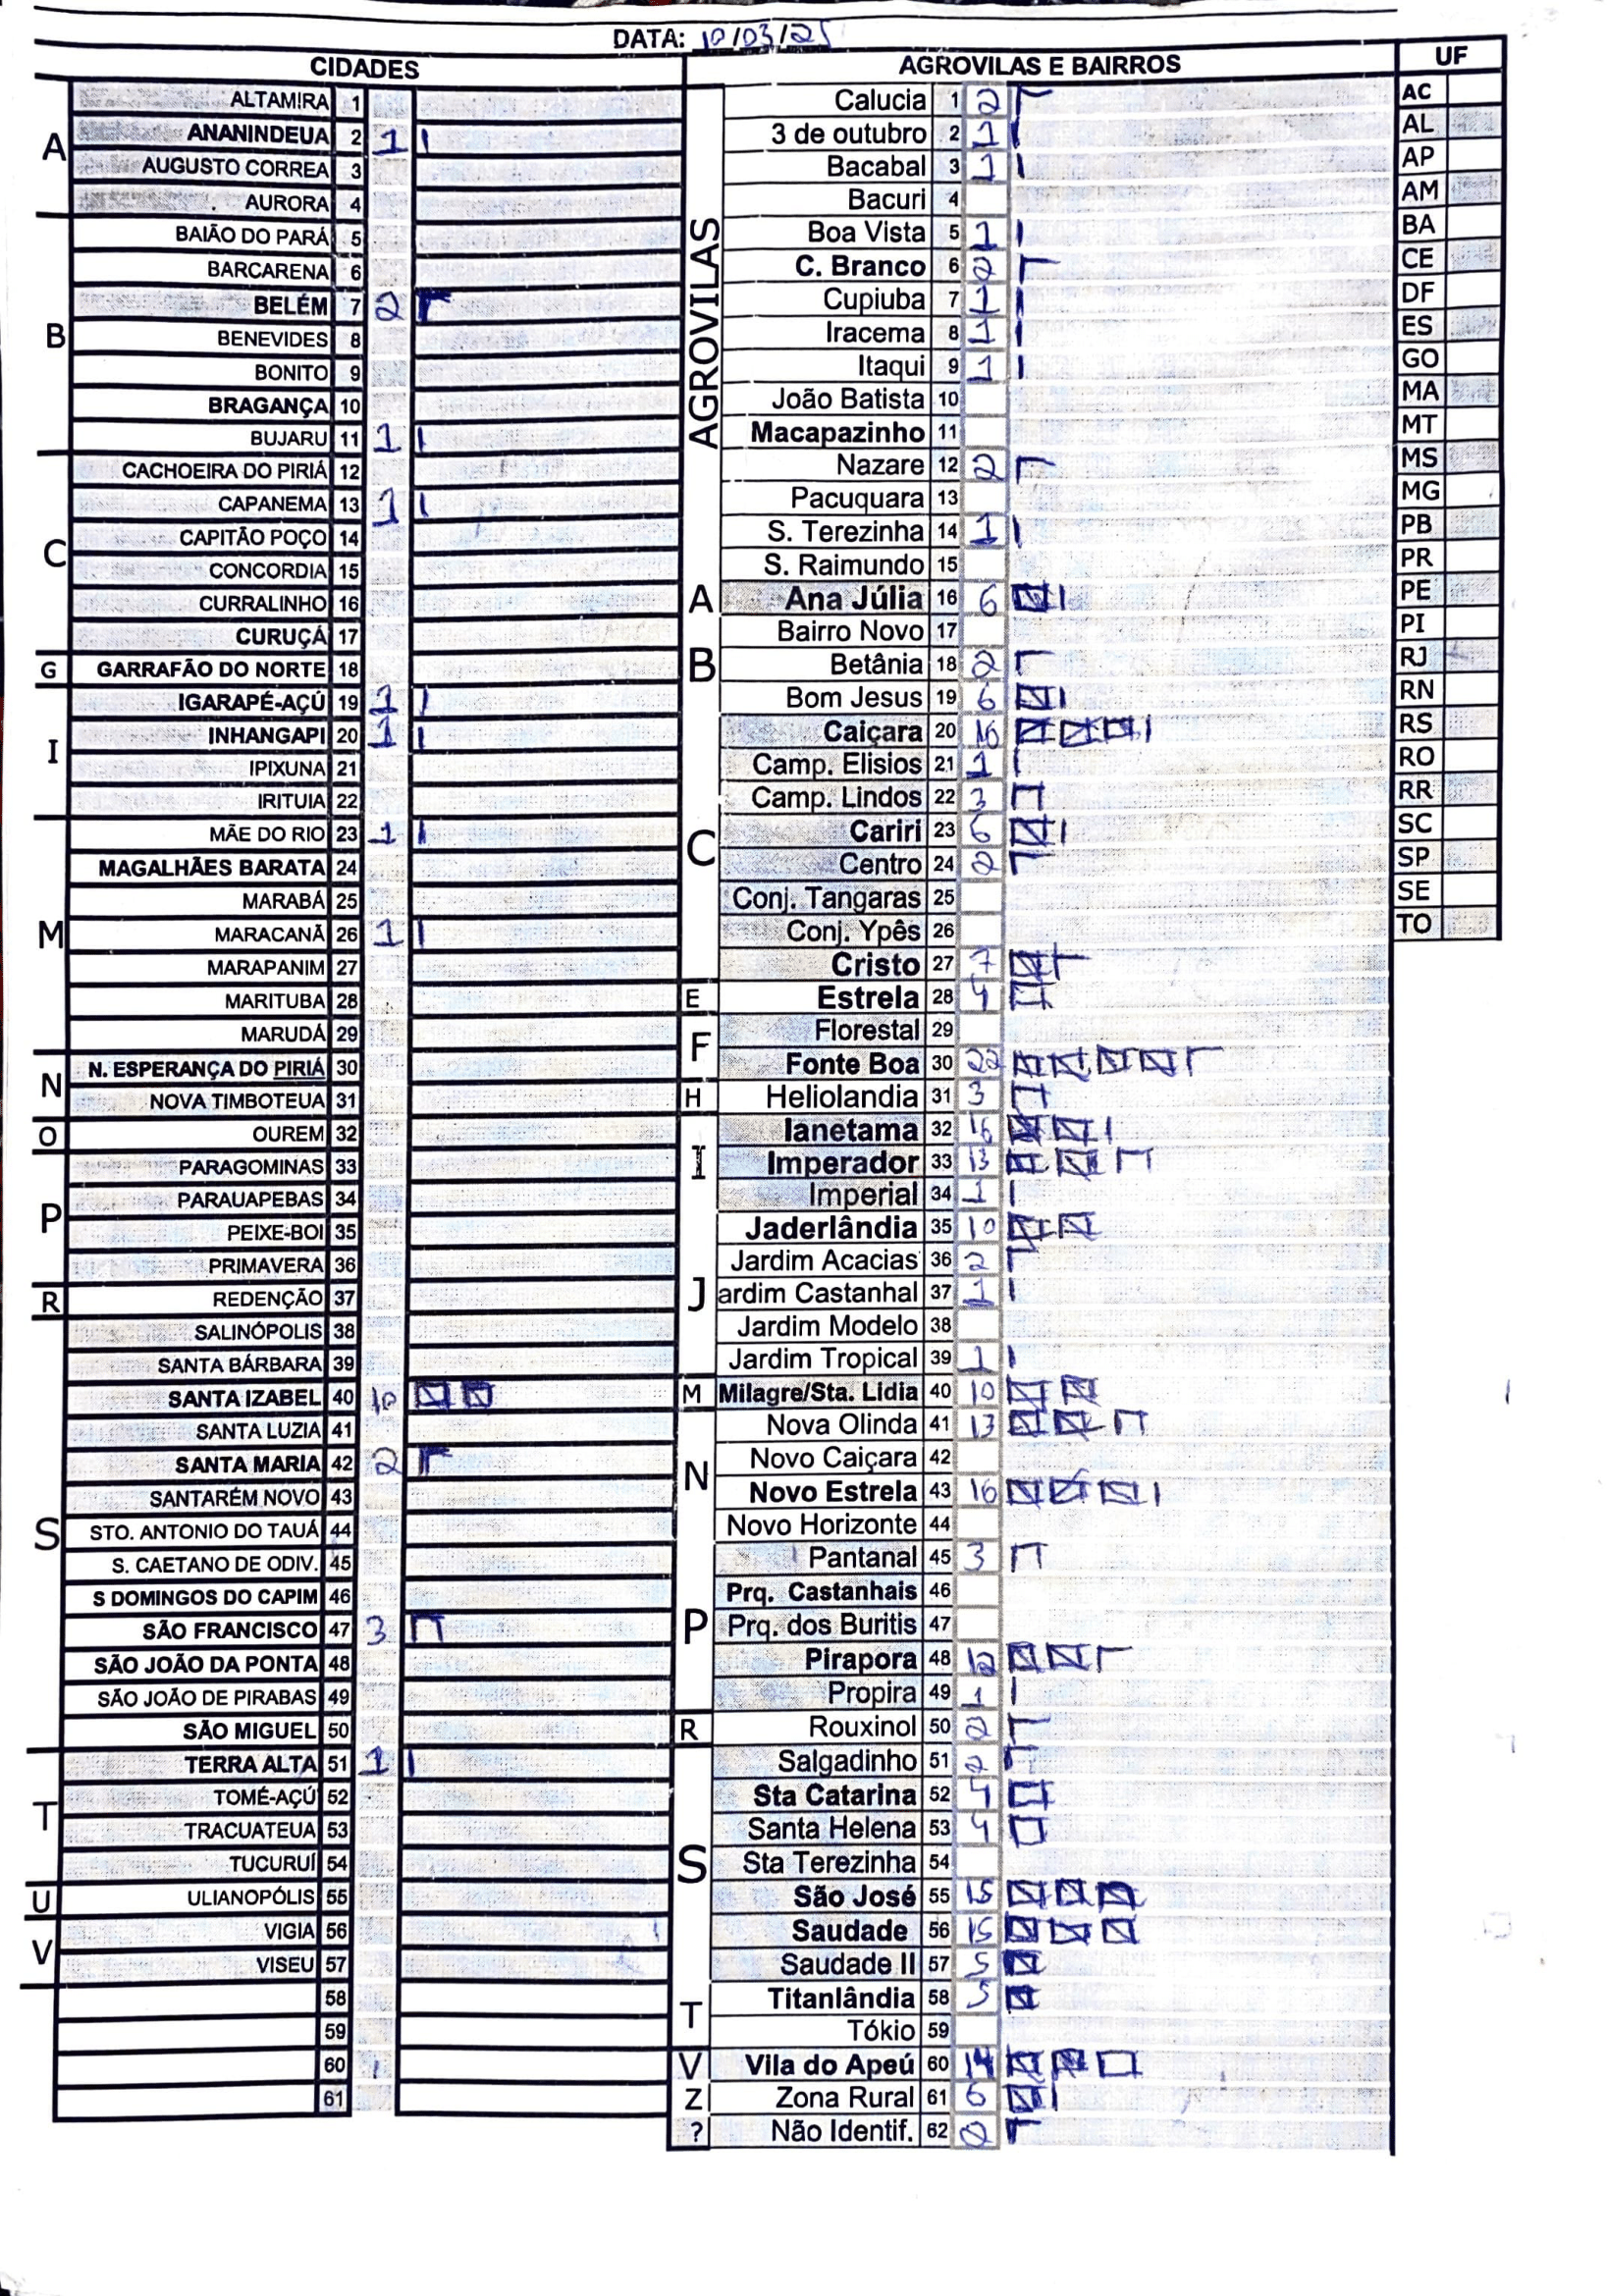 DATA: 10/03/25
CIDADES
A
ALTAMIRA 1
ANANINDEUA 2 1
AUGUSTO CORREA 3
AURORA 4
B
BAIÃO DO PARÁ 5
BARCARENA 6
BELÉM 7 2
BENEVIDES 8
BONITO 9
BRAGANÇA 10
BUJARU 11 1
C
CACHOEIRA DO PIRIÁ 12
CAPANEMA 13 1
CAPITÃO POÇO 14
CONCORDIA 15
CURRALINHO 16
CURUÇÁ 17
G
GARRAFÃO DO NORTE 18
I
IGARAPÉ-AÇÚ 19 1
INHANGAPI 20 1
IPIXUNA 21
IRITUIA 22
M
MÃE DO RIO 23 1
MAGALHÃES BARATA 24
MARABÁ 25
MARACANÃ 26 1
MARAPANIM 27
MARITUBA 28
MARUDÁ 29
N
N. ESPERANÇA DO PIRIÁ 30
NOVA TIMBOTEUA 31
O
OUREM 32
P
PARAGOMINAS 33
PARAUAPEBAS 34
PEIXE-BOI 35
PRIMAVERA 36
R
REDENÇÃO 37
S
SALINÓPOLIS 38
SANTA BÁRBARA 39
SANTA IZABEL 40 10
SANTA LUZIA 41
SANTA MARIA 42 2
SANTARÉM NOVO 43
STO. ANTONIO DO TAUÁ 44
S. CAETANO DE ODIV. 45
S DOMINGOS DO CAPIM 46
SÃO FRANCISCO 47 3
SÃO JOÃO DA PONTA 48
SÃO JOÃO DE PIRABAS 49
SÃO MIGUEL 50
T
TERRA ALTA 51 1
TOMÉ-AÇÚ 52
TRACUATEUA 53
TUCURUÍ 54
U
ULIANOPÓLIS 55
V
VIGIA 56
VISEU 57
58
59
60
61
AGROVILAS E BAIRROS
AGROVILAS
Calucia 1 2
3 de outubro 2 1
Bacabal 3 1
Bacuri 4
Boa Vista 5 1
C. Branco 6 2
Cupiuba 7 1
Iracema 8 1
Itaqui 9 1
João Batista 10
Macapazinho 11
Nazare 12 2
Pacuquara 13
S. Terezinha 14 1
S. Raimundo 15
A
Ana Júlia 16 6
B
Bairro Novo 17
Betânia 18 2
Bom Jesus 19 6
C
Caiçara 20 16
Camp. Elisios 21 1
Camp. Lindos 22 3
Cariri 23 6
Centro 24 2
Conj. Tangaras 25
Conj. Ypês 26
Cristo 27 7
E
Estrela 28 4
F
Florestal 29
Fonte Boa 30 22
H
Heliolandia 31 3
I
Ianetama 32 16
Imperador 33 13
Imperial 34 1
J
Jaderlândia 35 10
Jardim Acacias 36 2
ardim Castanhal 37 1
Jardim Modelo 38
Jardim Tropical 39 1
M
Milagre/Sta. Lidia 40 10
N
Nova Olinda 41 13
Novo Caiçara 42
Novo Estrela 43 16
Novo Horizonte 44
P
Pantanal 45 3
Prq. Castanhais 46
Prq. dos Buritis 47
Pirapora 48 12
Propira 49 1
R
Rouxinol 50 2
S
Salgadinho 51 2
Sta Catarina 52 4
Santa Helena 53 4
Sta Terezinha 54
São José 55 15
Saudade 56 15
Saudade II 57 5
T
Titanlândia 58 5
Tókio 59
V
Vila do Apeú 60 14
Z
Zona Rural 61 6
?
Não Identif. 62
UF
AC
AL
AP
AM
BA
CE
DF
ES
GO
MA
MT
MS
MG
PB
PR
PE
PI
RJ
RN
RS
RO
RR
SC
SP
SE
TO